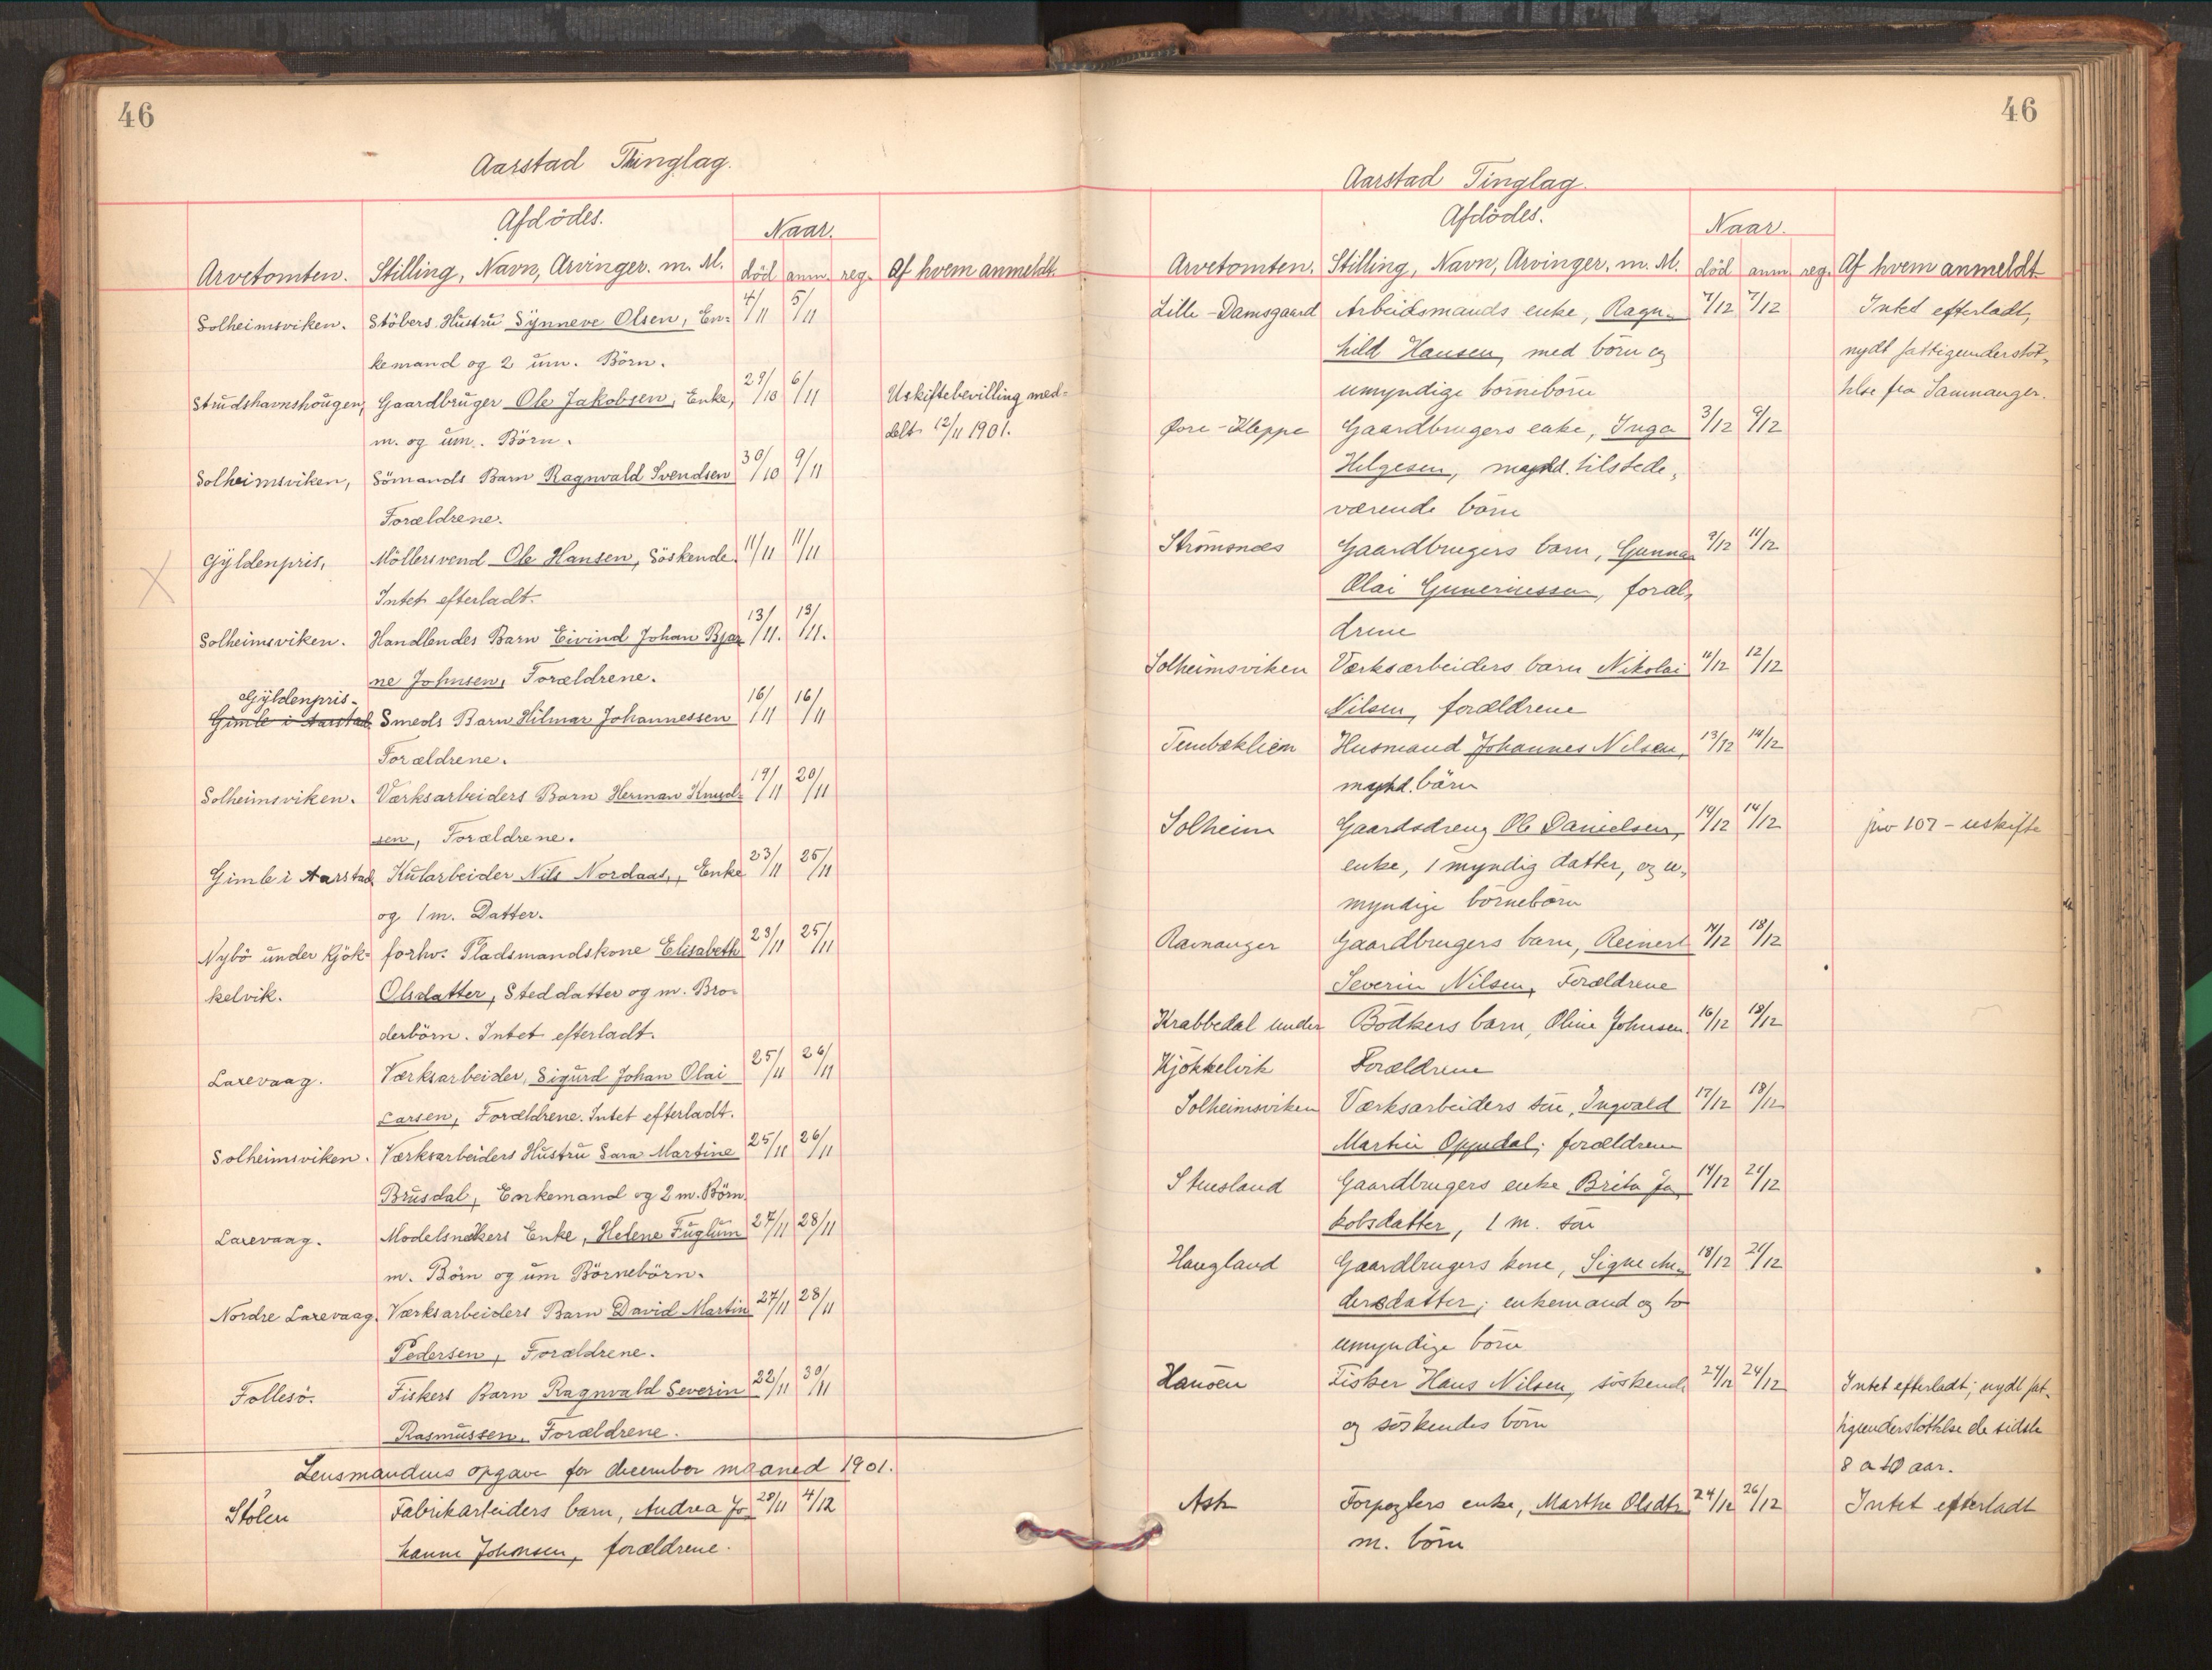 46
Aarstad Thinglag.
Afdödes.
Naar.
Arvetomten. Stilling, Navn, Arvinger. m. M. död anm. reg. Af hvem anmeldt.
Solheimsviken. Stöbers Hustru Synneve Olsen, En= 4/11 5/11
kemand og 2 um. Börn.
Strudshavnshougen, Gaardbruger Ole Jakobsen, Enke, 29/10 6/11 Uskiftebevilling med=
m. og um. Börn. delt 12/11 1901.
Solheimsviken, Sömands Barn Ragnvald Svendsen 30/10 9/11
Forældrene.
Gyldenpris, Möllersvend Ole Hansen, Söskende. 11/11 11/11
Intet efterladt.
Solheimsviken. Handlendes Barn Eivind Johan Bjar 13/11. 13/11.
ne Johnsen, Forældrene.
Gyldenpris-
Gimle i Aarstad Smeds Barn Hilmar Johannessen 16/11 16/11
Forældrene.
Solheimsviken. Værksarbeiders Barn Herman Knud= 19/11 20/11
sen, Forældrene.
Gimle i Aarstad Kularbeider Nils Nordaas,, Enke 23/11 25/11
og 1 m. Datter.
Nybö under Kjök= forhv. Pladsmandskone Elisabeth 23/11 25/11
kelvik. Olsdatter, Steddatter og m. Bro=
derbörn. Intet efterladt.
Laxevaag. Værksarbeider, Sigurd Johan Olai 25/11 26/11
Larsen, Forældrene. Intet efterladt.
Solheimsviken. Værksarbeiders Hustru Sara Martine 25/11 26/11
Brusdal, Enkemand og 2 m. Börn.
Laxevaag. Modelsnekers Enke, Helene Fuglum 27/11 28/11
m. Börn og um Börnebörn.
Nordre Laxevaag. Værksarbeiders Barn David Martin 27/11 28/11
Pedersen, Forældrene.
Follesö. Fiskers Barn Ragnvald Severin 22/11 30/11
Rasmussen, Forældrene.
Lensmandens opgave for december maaned 1901.
Stölen Fabrikarbeiders barn, Andrea Jo 28/11 4/12
hanne Johnsen, forældrene.
46
Aarstad Tinglag.
Afdödes.
Naar.
Arvetomten. Stilling, Navn, Arvinger. m. M. död anm reg. Af hvem anmeldt
Lille-Damsgaard Arbeidsmands enke, Ragn- 7/12 7/12 Intet efterladt,
hild Hansen, med börn og nydt fattigunderstöt,
umyndige börnebörn telse fra Samnanger.
Øvre-Kleppe Gaardbrugers enke, Inga 3/12 9/12
Helgesen, mynd. tilstede,
værende börn
Strömsnes Gaardbrugers barn, Gunnar 9/12 11/12
Olai Guneriussen, foræl,
drene
Solheimsviken Værksarbeiders barn Nikolai 11/12 12/12
Nilsen, forældrene
Tennebæklien Husmand Johannes Nilsen, 13/12 14/12
mynd. börn
Solheim Gaardsdreng Ole Danielsen, 14/12 14/12 jnv 107 - uskifte
enke, 1 myndig datter, og u,
myndige börnebörn
Ramanger Gaardbrugers barn, Reinert 14/12 18/12
Severin Nilsen, Forældrene
Krabbedal under Bödkers barn, Oline Johnsen. 16/12 18/12
Kjökkelvik Forældrene
Solheimsviken Værksarbeiders sön, Ingvald 17/12 18/12
Martin Oppedal; forældrene
Gaardbrugers enke Brita Ja 14/12 21/12
kobsdatter, 1 m. sön
Haugland Gaardbrugers kone, Signe An 18/12 21/12
dersdatter; enkemand og to
umyndige börn
Hanöen Fisker Hans Nilsen, söskende 24/12 24/12 Intet efterladt; nydt fat,
og söskendes börn tigunderstöttelse de sidste
8 a 10 aar.
Ask Forpagters enke, Marthe Olsdtr 24/12 26/12 Intet efterladt
m. börn